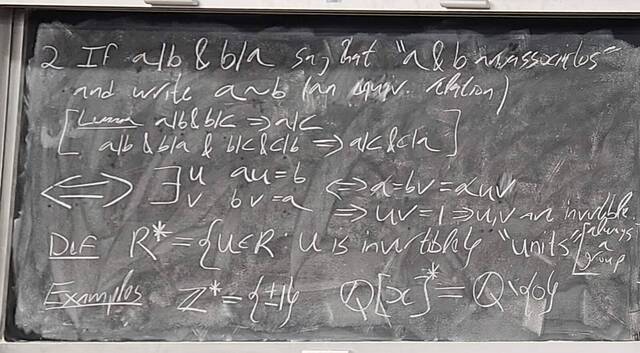 2 If a|b & b|a say that "a & b are associates"
and write a~b (an equiv. relation)
[Lemma a|b & b|c ⇒ a|c
a|b & b|a & b|c & c|b ⇒ a|c & c|a]
⟺ ∃ u v au=b bv=a ⟺ a=bv=auv
⇒ uv=1 ⇒ u,v are invertible
Def R* = {u∈R: u is invertible} "units" [always a group
Examples Z* = {±1} Q[x]* = Q\{0}